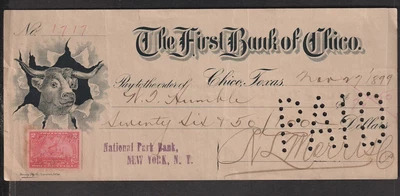 No. 1717
The First Bank of Chico.
Chico, Texas, Nov 27 1899
Pay to the order of
W. T. Humble
Seventy Six & 50/100 Dollars
PAID
National Park Bank,
NEW YORK, N. Y.